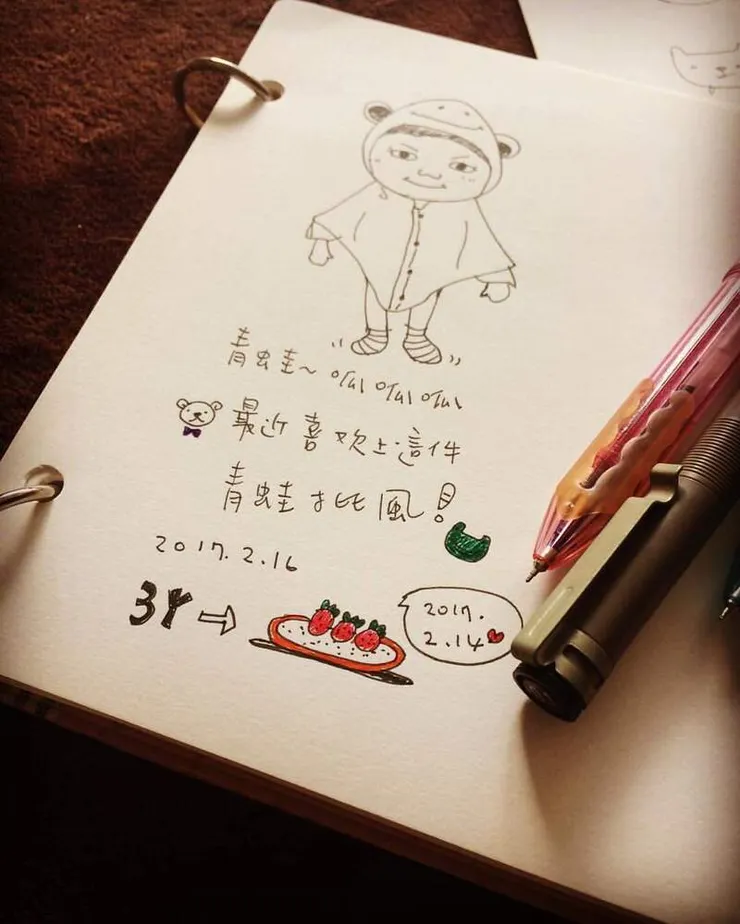 青蛙~呱呱呱
最近喜歡上這件
青蛙披風!
2017.2.16
2017.
2.14